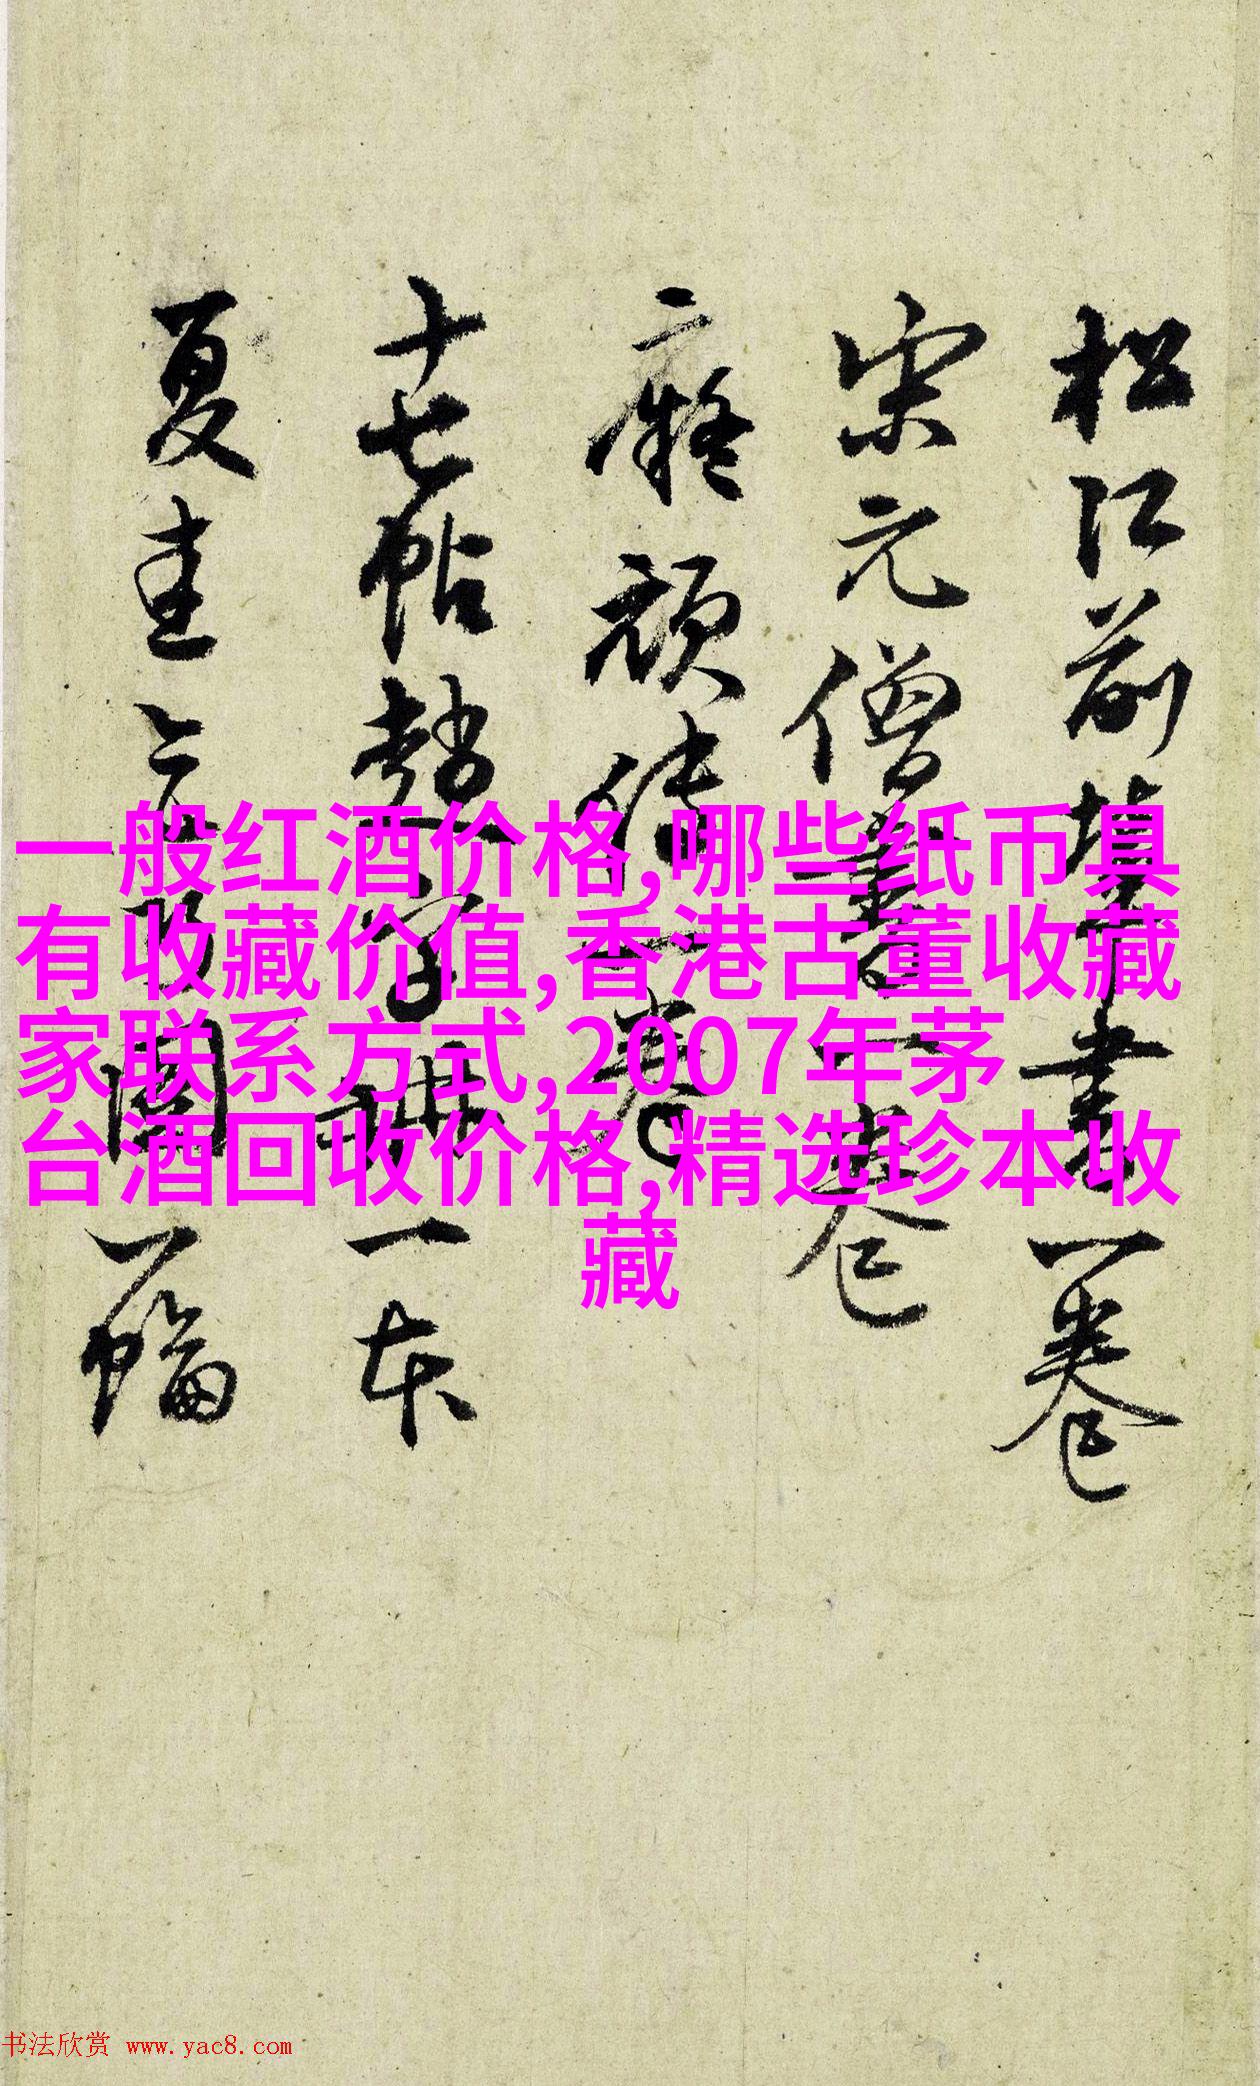 松江前塡書一卷
宋元僧書一卷
二癡頑傳一卷
十七帖趙字冊一本
夏圭
一幅
一般红酒价格,哪些纸币具
有收藏价值,香港古董收藏
家联系方式,2007年茅
台酒回收价格,精选珍本收
藏
书法欣赏 www.yac8.com